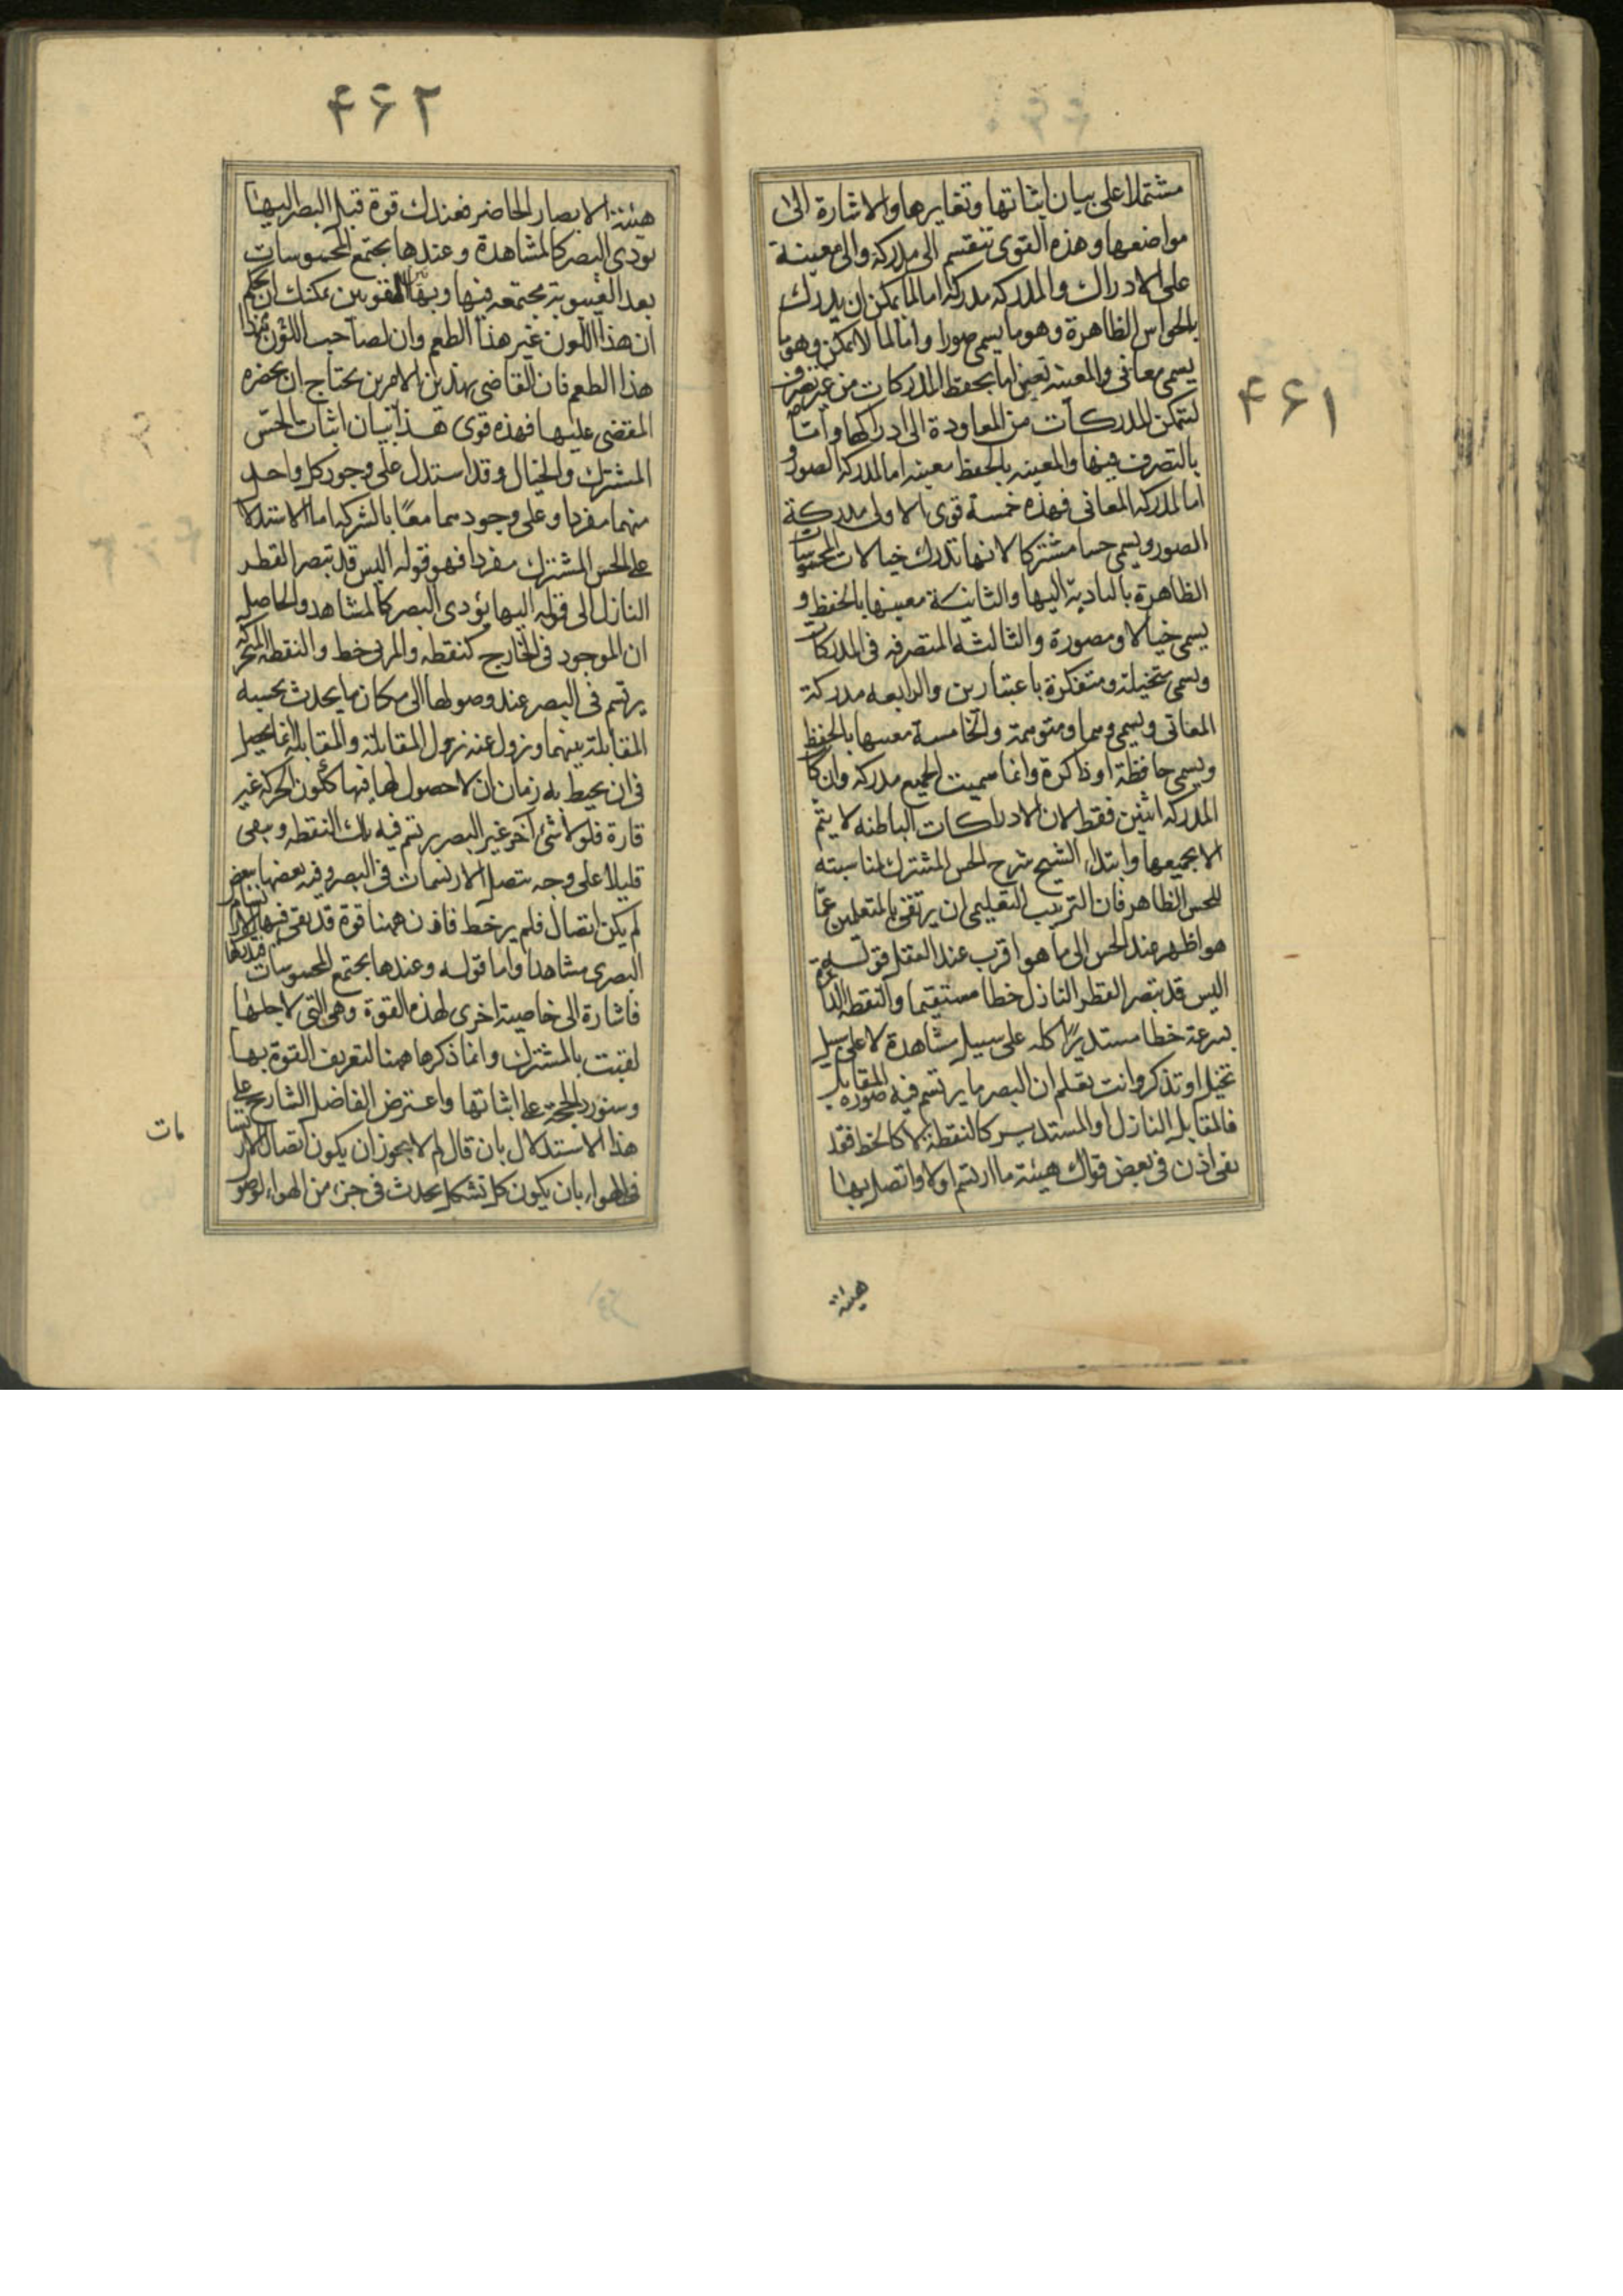 ۴۶۱
مشتملا على بيان اثباتها وتغايرها والاشارة الى
مواضعها وهذه القوى تنقسم الى مدركة والى معينة
على الادراك والمدركه مدركة اما لما يمكن ان يدرك
بالحواس الظاهرة وهو ما يسمى صورا واما لما لا يمكن وهو ما
يسمى معانى والمعينه تعين اما بحفظ المدركات من غير تصرف
ليتمكن المدركات من المعاودة الى ادراكها واما
بالتصرف فيها والمعينه بالحفظ معينه اما لمدركه الصور و
اما لمدركه المعانى فهذه خمسة قوى الاولى مدركة
الصور ويسمى حسا مشتركا لانها تدرك خيالات المحسوسات
الظاهرة بالتادية اليها والثانية معينها بالحفظ و
يسمى خيالا ومصورة والثالثه المتصرفه فى المدركات
ويسمى متخيلة ومتفكرة باعتبارين والرابعه مدركة
المعانى ويسمى وهما ومتوهمة والخامسة معينها بالحفظ
ويسمى حافظة او ذاكرة وانما سميت الجميع مدركه وان كا
المدركه اثنين فقط لان الادراكات الباطنه لا يتم
الا بجميعها وابتداء الشيخ شرح الحس المشترك لمناسبته
للحس الظاهر فان الترتيب التعليمى ان يرتقى بالمتعلمين عمّا
هو اظهر عند الحس الى ما هو اقرب عند العقل قولسه
اليس قد تبصر القطر النازل خطا مستقيما والنقطه الدا
بسرعة خطا مستديرًا كله على سبيل مشاهدة لا على سبيل
تخيل او تذكر وانت تعلم ان البصر ما يرتسم فيه صوره المقابل
فالمقابل النازل او المستدير كالنقطة لا كالخط فقد
بقى اذن فى بعض قواك هيئة ما ارتسم اولا واتصل بها
هيئة
۴۶۲
هيئة الابصار الحاضر فعندك قوة قبل البصر اليها
يؤدى البصر كالمشاهدة وعندها يجتمع المحسوسات
بعد الغيبوبة مجتمعه فيها وبهاتين القوتين يمكنك ان تحكم
ان هذا اللون غير هذا الطعم وان لصاحب اللون هذا
هذا الطعم فان القاضى بهذين الامرين يحتاج ان يحضره
المقضى عليها فهذه قوى هذا بيان اثبات الحس
المشترك والخيال وقد استدل على وجود كل واحد
منهما مفردا وعلى وجودهما معًا بالشركه اما الاستدلا
على الحس المشترك مفردا فهو قوله اليس قد تبصر القطر
النازل الى قوله اليها يؤدى البصر كالمشاهد والحاصل
ان الموجود فى الخارج كنقطه والمرئى خط والنقطه المتحركه
يرتسم فى البصر عند وصولها الى مكان ما يحدث بحسبه
المقابلة بينهما ويزول عنه بزول المقابلة والمقابلة انما يحصل
فى ان يحيط به زمانان لا حصول لها فيها كلون الحركه غير
قارة فلولا شئ آخر غير البصر يرتسم فيه تلك النقطه وتبقى
قليلا على وجه يتصل الارتسمات فى البصر وفيه بعضها ببعض
لم يكن اتصال فلم ير خط فاذن ههنا قوة قد بقى فيها الارتسام
البصرى مشاهدا واما قوله وعندها يجتمع المحسوسات فتدركها
فاشارة الى خاصية اخرى لهذه القوة وهى التى لاجلها
لقبت بالمشترك وانما ذكرها ههنا لتعريف القوة بها
وسنورد الحجة على اثباتها واعترض الفاضل الشارح على
هذا الاستدلال بان قال لم لا يجوز ان يكون اتصال الارتسا
مات
فى الهواء بان يكون كل تشكل يحدث فى جزء من الهواء لوصو